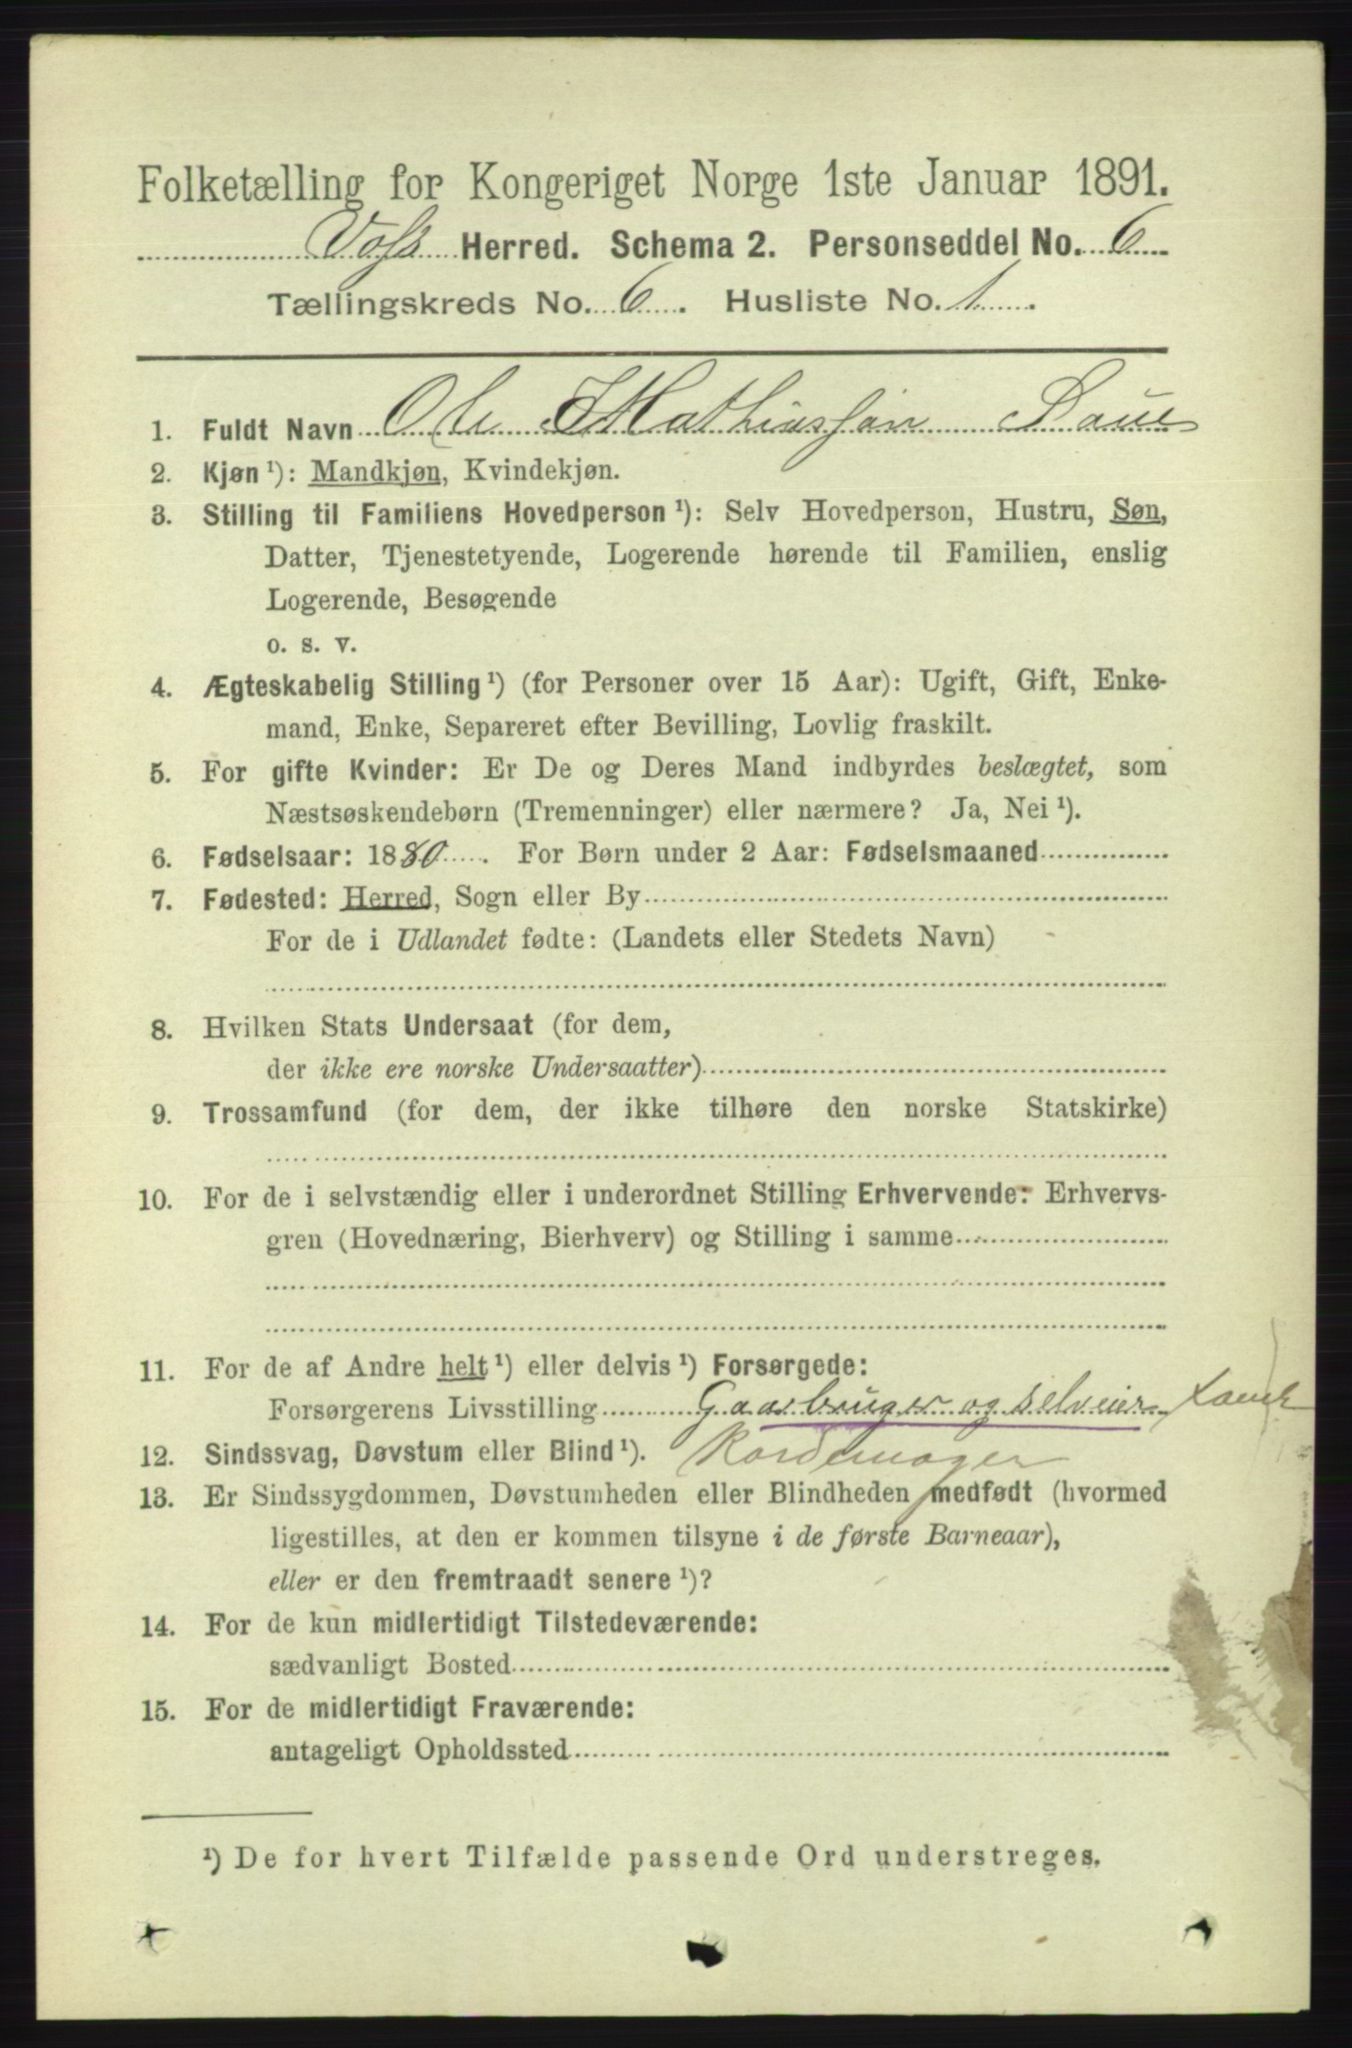 Folketælling for Kongeriget Norge 1ste Januar 1891.
Voss Herred. Schema 2. Personseddel No. 6
Tællingskreds No. 6. Husliste No. 1.
1. Fuldt Navn Ole Mathiassøn
2. Kjøn ¹): Mandkjøn, Kvindekjøn.
3. Stilling til Familiens Hovedperson ¹): Selv Hovedperson, Hustru, Søn,
Datter, Tjenestetyende, Logerende hørende til Familien, enslig
Logerende, Besøgende
o. s. v.
4. Ægteskabelig Stilling ¹) (for Personer over 15 Aar): Ugift, Gift, Enke-
mand, Enke, Separeret efter Bevilling, Lovlig fraskilt.
5. For gifte Kvinder: Er De og Deres Mand indbyrdes beslægtet, som
Næstsøskendebørn (Tremenninger) eller nærmere? Ja, Nei ¹).
6. Fødselsaar: 1880. For Børn under 2 Aar: Fødselsmaaned
7. Fødested: Herred, Sogn eller By
For de i Udlandet fødte: (Landets eller Stedets Navn)
8. Hvilken Stats Undersaat (for dem,
der ikke ere norske Undersaatter)
9. Trossamfund (for dem, der ikke tilhøre den norske Statskirke)
10. For de i selvstændig eller i underordnet Stilling Erhvervende: Erhvervs-
gren (Hovednæring, Bierhverv) og Stilling i samme
11. For de af Andre helt ¹) eller delvis ¹) Forsørgede:
Forsørgerens Livsstilling Gaarbruger og selveier
12. Sindssvag, Døvstum eller Blind ¹).
13. Er Sindssygdommen, Døvstumheden eller Blindheden medfødt (hvormed
ligestilles, at den er kommen tilsyne i de første Barneaar),
eller er den fremtraadt senere ¹)?
14. For de kun midlertidigt Tilstedeværende:
sædvanligt Bosted
15. For de midlertidigt Fraværende:
antageligt Opholdssted
¹) De for hvert Tilfælde passende Ord understreges.